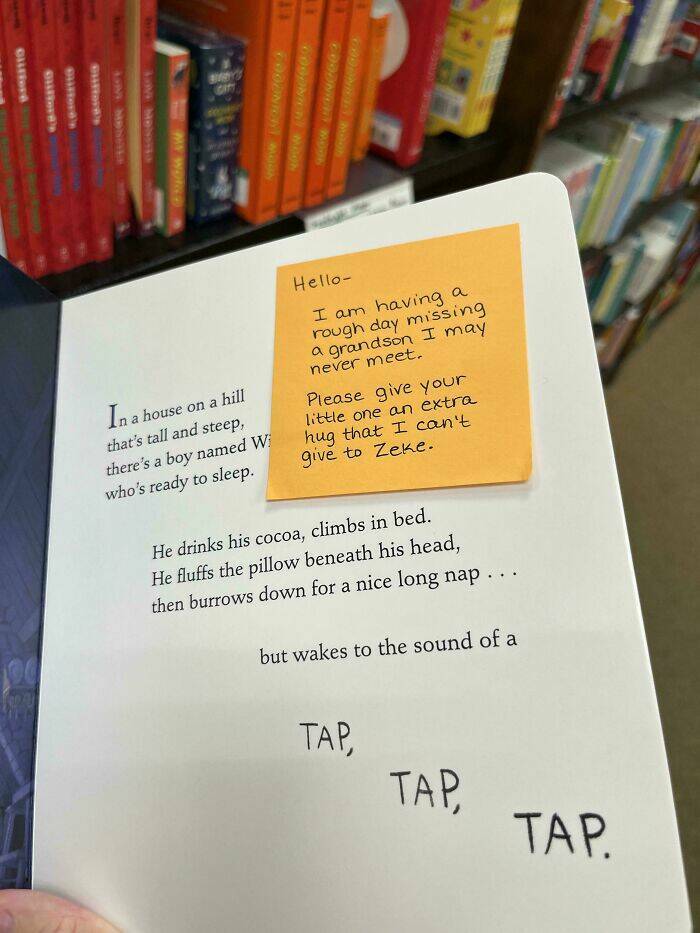 Clifford's
Clifford's
Clifford's
MY WORLD
A BABY'S
GIFT
GOODNIGHT MOON
GOODNIGHT MOON
GOODNIGHT MOON
GOODNIGHT MOON
Hello-
I am having a
rough day missing
a grandson I may
never meet.
Please give your
little one an extra
hug that I can't
give to Zeke.
In a house on a hill
that's tall and steep,
there's a boy named Wi
who's ready to sleep.
He drinks his cocoa, climbs in bed.
He fluffs the pillow beneath his head,
then burrows down for a nice long nap . . .
but wakes to the sound of a
TAP,
TAP,
TAP.